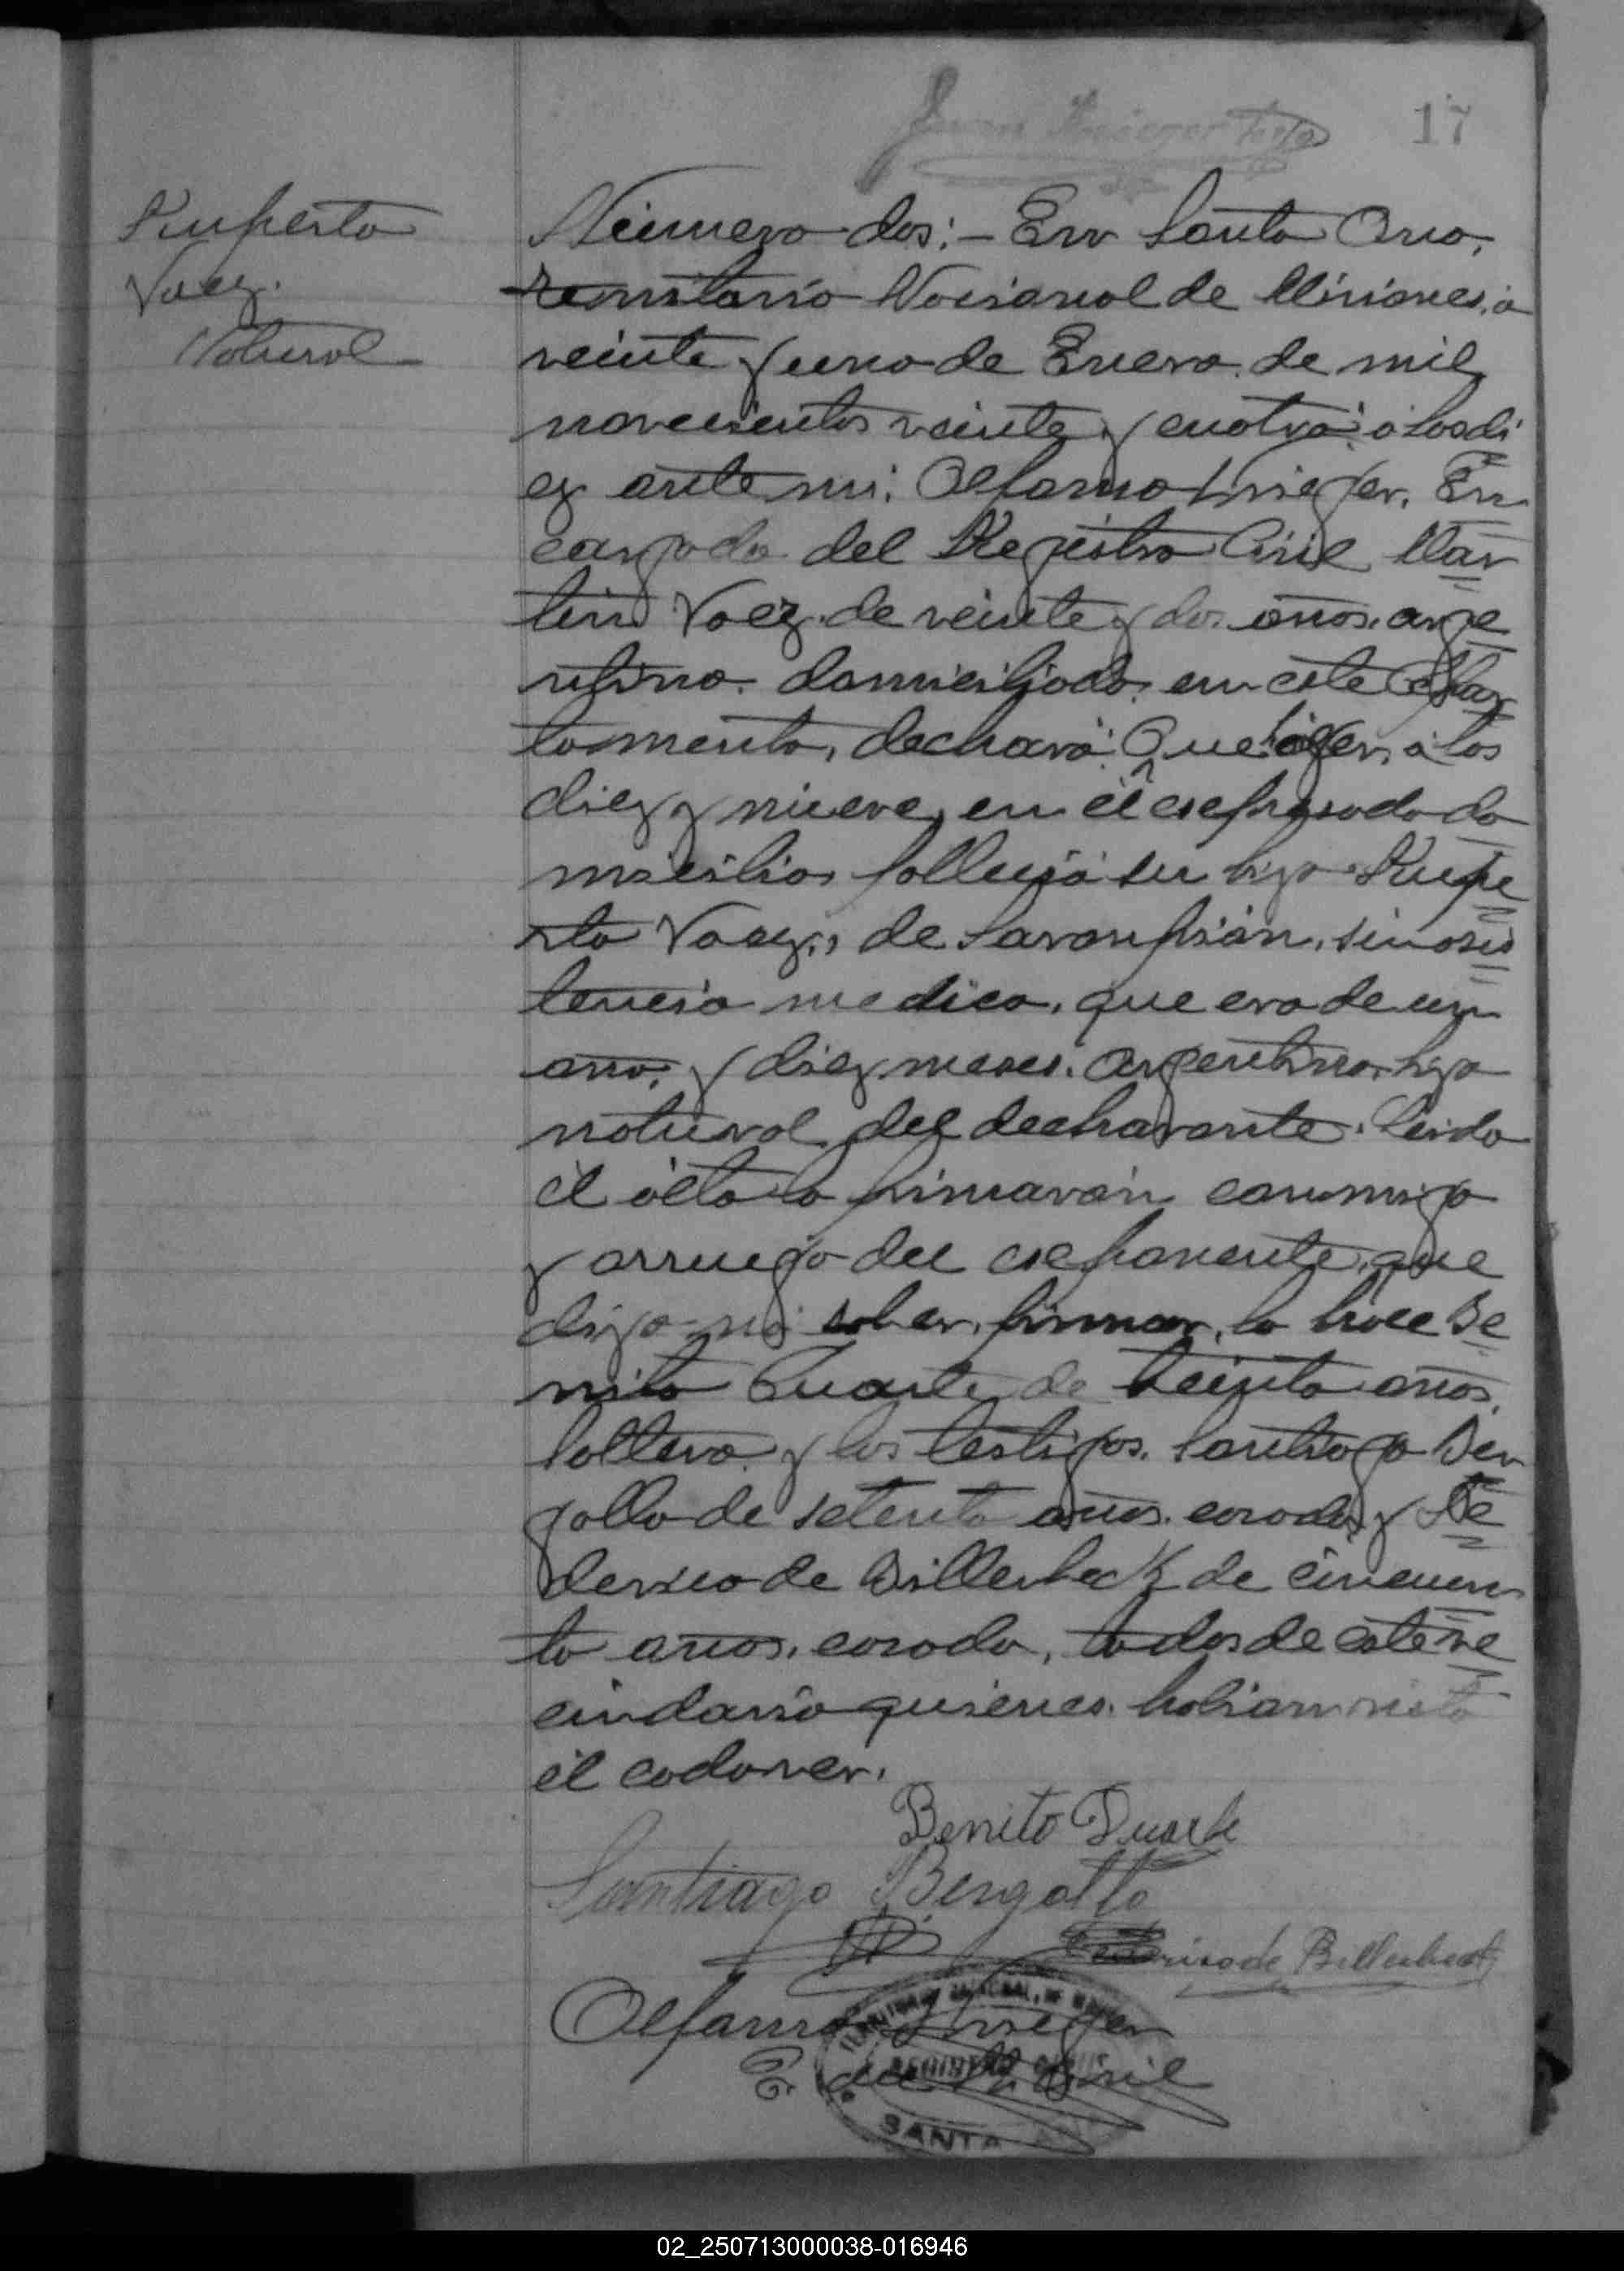 17
Ruperto
Vaez.
Natural
Número dos:- En Santa Ana,
territorio Nacional de Misiones, a
veinte y uno de Enero de mil
novecientos veinte y cuatro a las di
ez ante mi: Encargado
cargado del Registro Civil Mar
tin Vaez de veinte y dos años, arge
ntino domiciliado en este Depar
tamento, declaró: Que ayer, a las
diez y nueve, en el expresado do
micilio, falleció su hijo Rupe
rto Vaez, de Sarampión, sin asis
tencia medica, que era de un
año, y diez meses, argentino, hijo
natural del declarante. Leida
el acta la firmaron conmigo
y arruego del exponente, que
dijo no saber firmar, lo hace Be
nito Duarte de treinta años,
soltero y los testigos Santiago Ber
gallo de setenta años, casado, y Fe
derico de Billerbeck de cincuen
ta años, casado, todos de este ve
cindario quienes habian visto
el cadaver.
Benito Duarte
Santiago Bergallo
Federico de Billerbeck
E. del R. Civil
REGISTRO CIVIL
SANTA
02_250713000038-016946